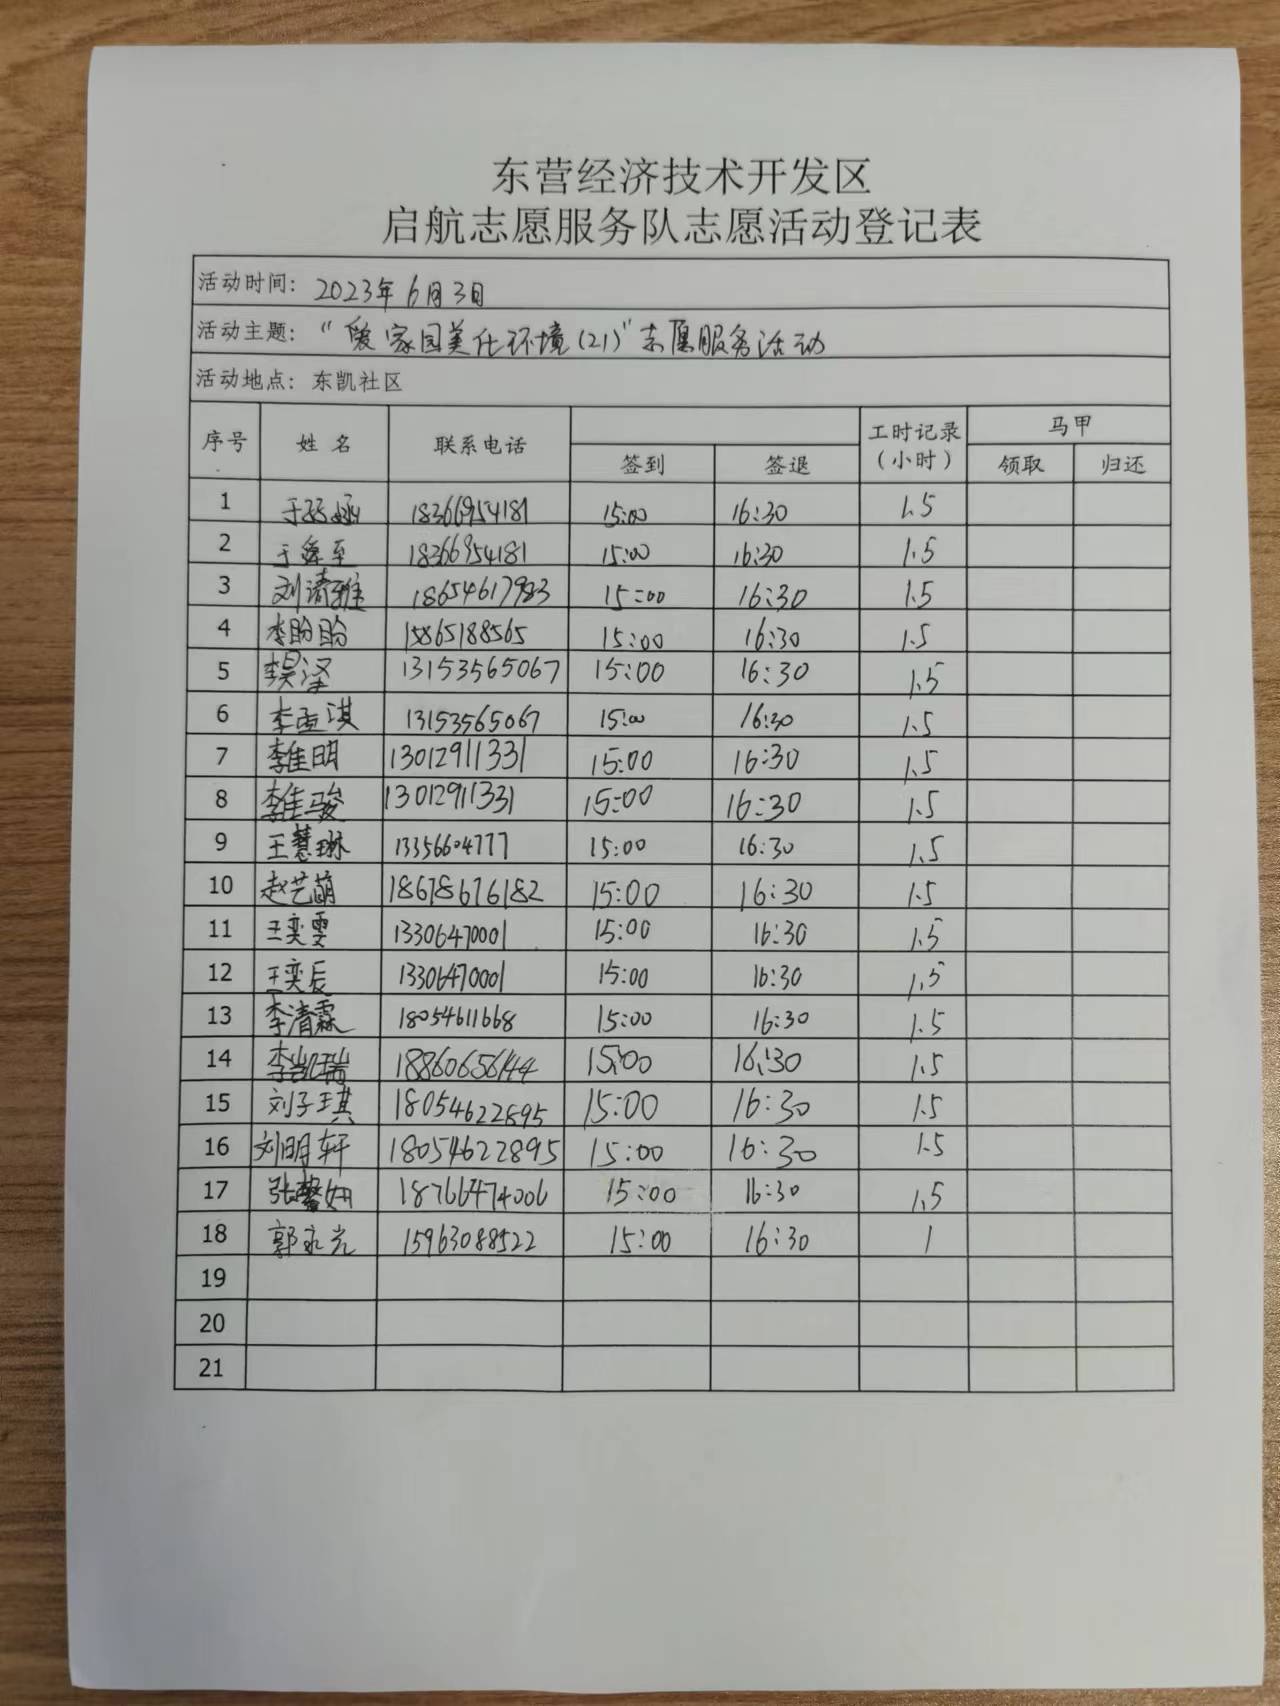 东营经济技术开发区
启航志愿服务队志愿活动登记表
活动时间: 2023年6月3日
活动主题: “爱家园美化环境(21)”志愿服务活动
活动地点: 东凯社区
序号 姓名 联系电话 工时记录(小时) 马甲
签到 签退 领取 归还
1 18366954181 15:00 16:30 1.5
2 于舜至 18366954181 15:00 16:30 1.5
3 刘清雅 18654617983 15:00 16:30 1.5
4 李盼盼 15865188565 15:00 16:30 1.5
5 李昊泽 13153565067 15:00 16:30 1.5
6 李孟淇 13153565067 15:00 16:30 1.5
7 李佳明 13012911331 15:00 16:30 1.5
8 李佳骏 13012911331 15:00 16:30 1.5
9 王慧琳 13356604777 15:00 16:30 1.5
10 赵艺萌 18678676182 15:00 16:30 1.5
11 王奕雯 13306470001 15:00 16:30 1.5
12 王奕辰 13306470001 15:00 16:30 1.5
13 李清霖 18054611668 15:00 16:30 1.5
14 李凯瑞 18860656144 15:00 16:30 1.5
15 刘子琪 18054622895 15:00 16:30 1.5
16 刘明轩 18054622895 15:00 16:30 1.5
17 张馨妞 18766474006 15:00 16:30 1.5
18 郭永光 15963088522 15:00 16:30 1
19
20
21